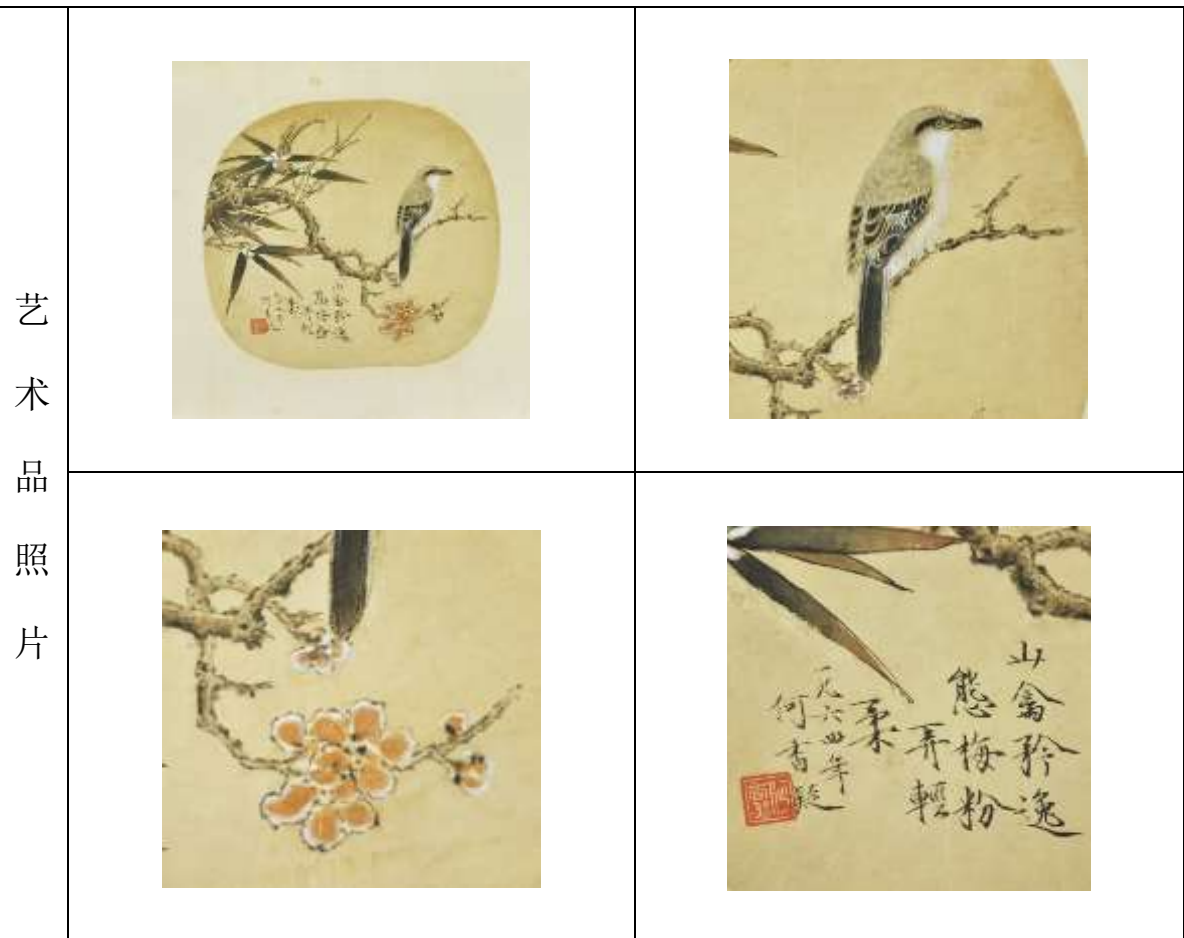 艺术品照片
山禽矜逸
态梅粉
弄轻
柔
一九六四年
何香凝